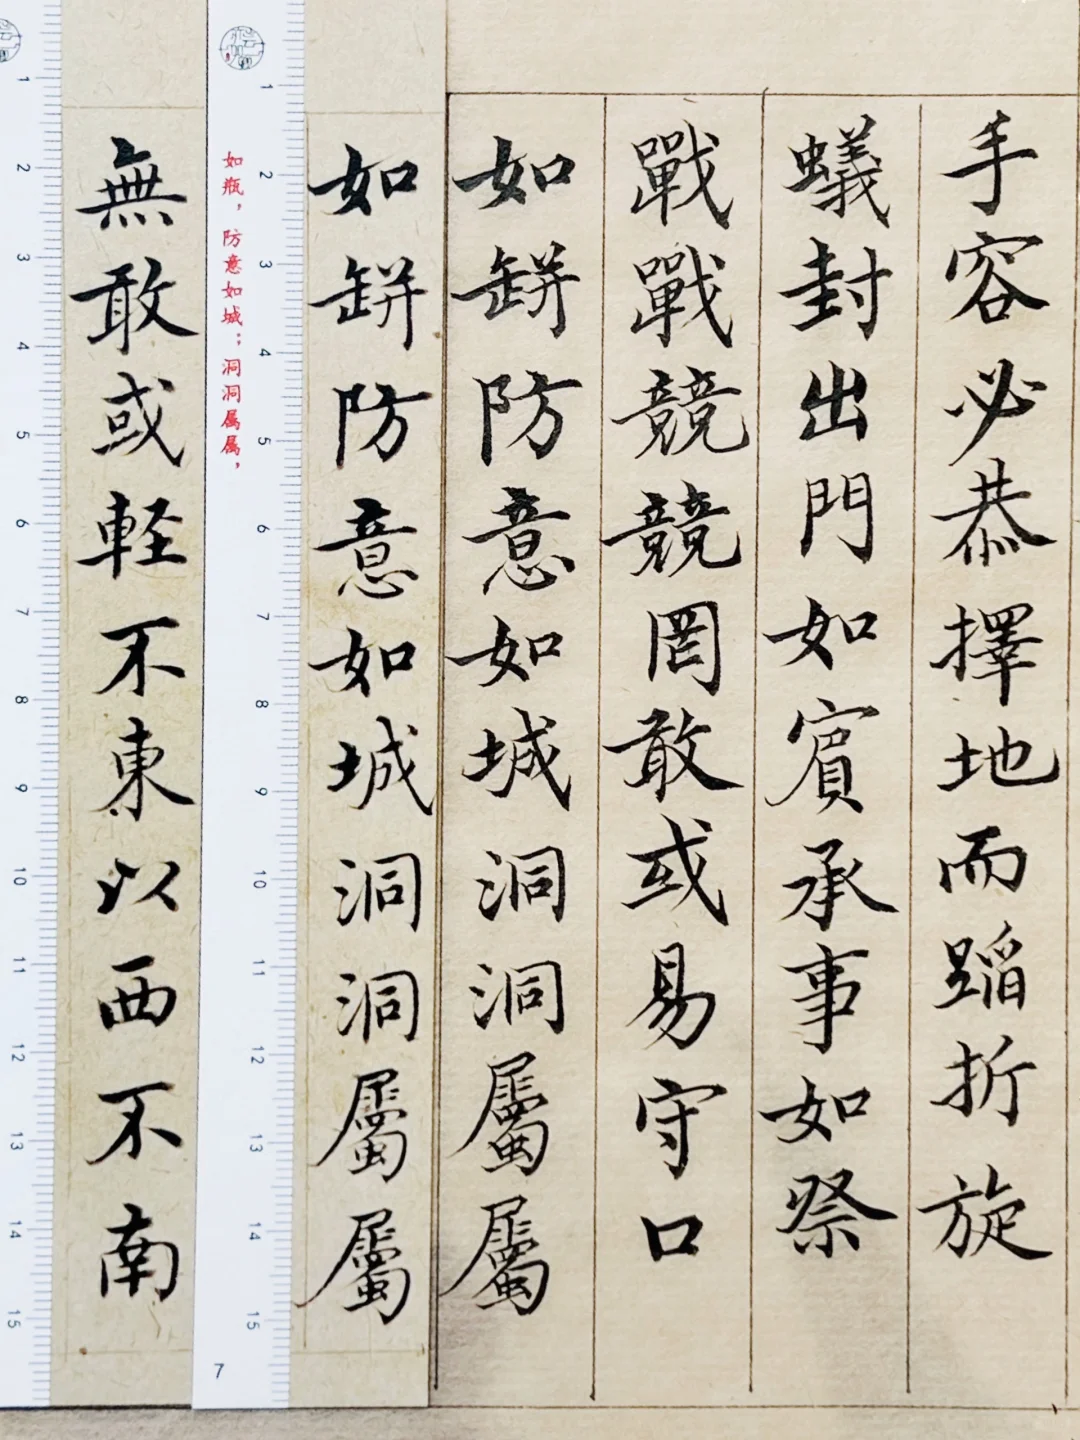 手容必恭擇地而蹈折旋
蟻封出門如賓承事如祭
戰戰競競罔敢或易守口
如缾防意如城洞洞屬屬
如缾防意如城洞洞屬屬
1 2 3 4 5 6 7 8 9 10 11 12 13 14 15
如瓶，防意如城；洞洞属属，
7
無敢或軽不東以西不南
1 2 3 4 5 6 7 8 9 10 11 12 13 14 15